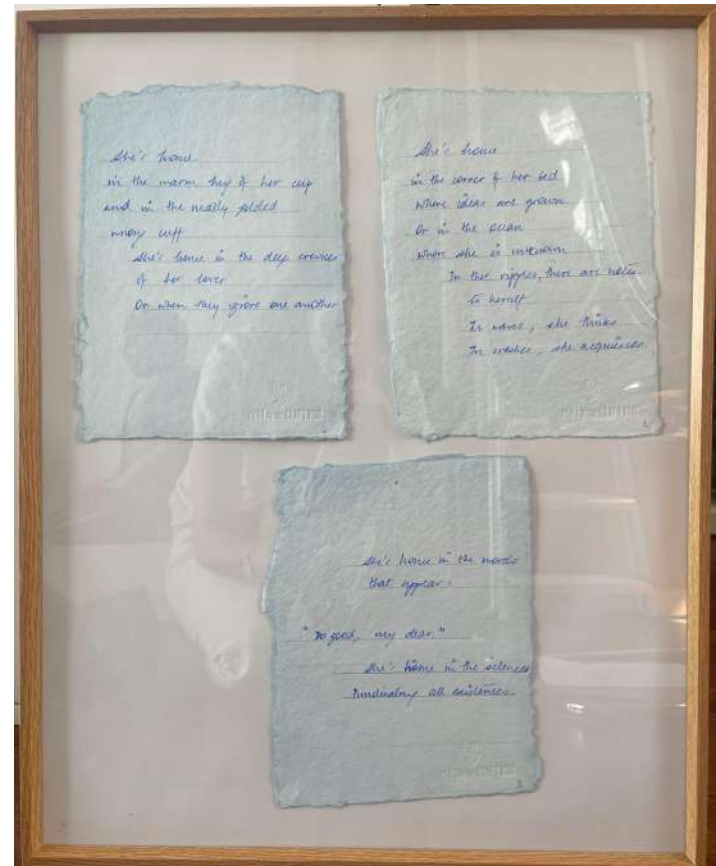 She's home
in the warm hug of her cup
and in the neatly folded
wrong cuff
She's home in the deep crevices
of her lover
Or when they ignore one another
She's home
in the corner of her bed
where ideas are grown
Or in the ocean
where she is unknown
In her ripples, there are notes
to herself
In waves, she thinks
In crashes, she acquiesces.
She's home in the words
that appear.
"Do good, my dear."
She's home in the silences
all existences.